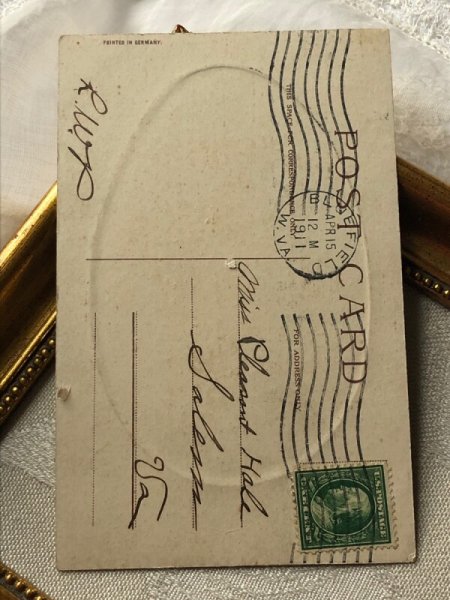 PRINTED IN GERMANY.
POST CARD
THIS SPACE FOR CORRESPONDENCE ONLY
FOR ADDRESS ONLY
BLUEFIELD
APR 15
12 M
1911
W. VA.
U.S. POSTAGE
R.W.P
Miss Pleasant Hale
Salem
Va